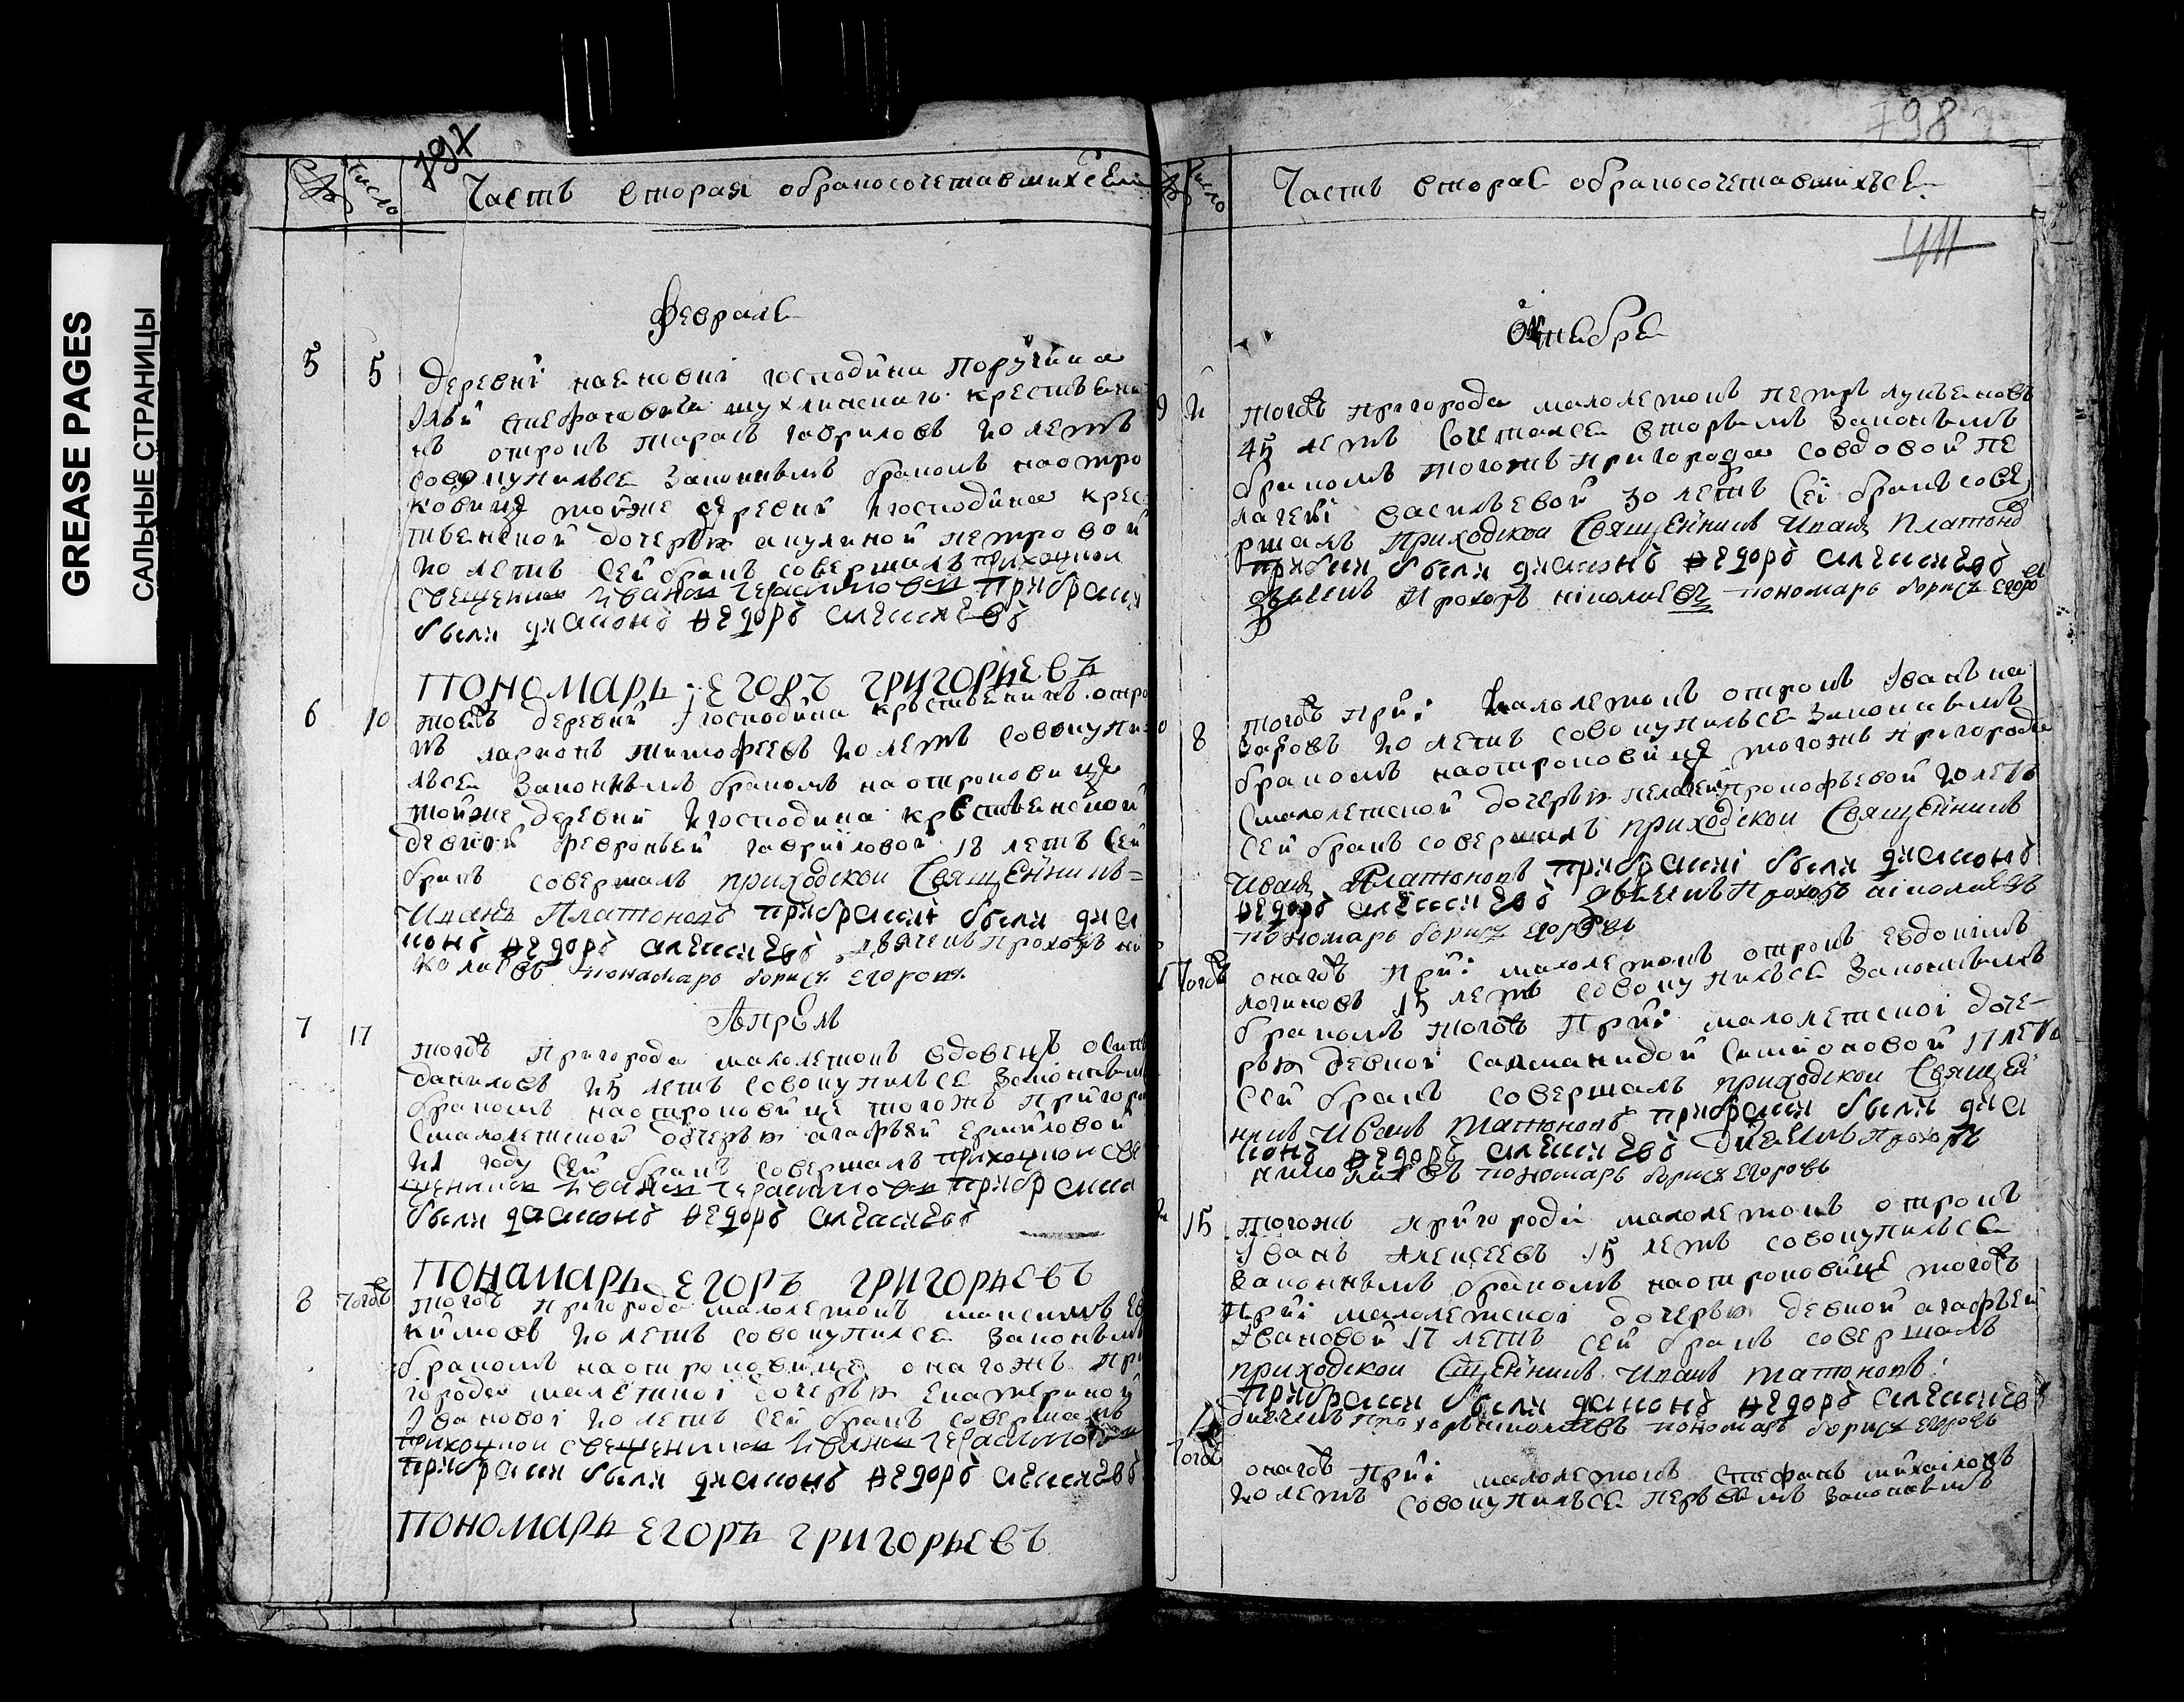 GREASE PAGES
САЛЬНЫЕ СТРАНИЦЫ
797
число
Часть вторая обракосочетавшихся
Февраль
5 5 деревни господина порутчика
отрокъ тарасъ гавриловъ 20 летъ
совокупилъся законнымъ бракомъ наотро
ковице тойже деревни игосподина крес
тьенской дочерью акулиной петровой
20 летъ сей бракъ совершалъ приходцкои
священникъ иванъ герасимовъ прибраки
были дияконъ федоръ алексеевъ
пономарь егоръ григорьевъ
6 10 тоежъ деревни игосподина крестьенинъ отро
къ ларионъ тимофеевъ 20 летъ совокупи
лъся законнымъ бракомъ наотроковице
тойже деревни игосподина крестьенской
девкой февроньей гавриловой 18 летъ сей
бракъ совершалъ приходскои священникъ
Иванъ Платоновъ прибракии были дия
конъ федоръ алексеевъ дьячекъ прохоръ ни
колаевъ пономарь борисъ егоровъ
Апрель
7 17 тогожъ пригорода малолетокъ вдовецъ осипъ
даниловъ 25 летъ совокупилъся законнымъ
бракомъ наотроковице тогожъ пригоро
смалолетской дочерью агафьей ермиловой
21 году сей бракъ совершалъ приходцкои све
щенникъ иванъ герасимовъ прибракии
были дияконъ федоръ алексеевъ
понамарь егоръ григорьевъ
8 тогожъ тогожъ пригорода малолетокъ максимъ ев
кимовъ 20 летъ совокупился законнымъ
бракомъ наотроковице онагожъ при
города дочерью екатериной
Ивановой 20 летъ сей бракъ совершалъ
приходцкои священникъ иванъ герасимовъ
прибракии были дияконъ федоръ алексеевъ
пономарь егоръ григорьевъ
798
число
Часть вторае обракосочетавшихъсе
411
Октебре
9 тогожъ пригорода малолетокъ петръ лукьеновъ
45 летъ сочеталсе вторымъ законнымъ
бракомъ тогожъ пригорода совдовой пе
лагеей васильевой 30 летъ сей бракъ сове
ршалъ приходскои Священникъ Иванъ Платоно
прибраки были дияконъ федоръ алексеевъ
дьячекъ Прохоръ николаевъ пономарь борисъ егоро
8 тогожъ при: малолетокъ отрокъ Иванъ на
заровъ 20 летъ совокупилъсе законнымъ
бракомъ наотроковице тогожъ пригорода
смалолетской дочерью пелагеей прокофьевой 20 летъ
сей бракъ совершалъ приходскои Священникъ
Иванъ Платоновъ прибракии были дияконъ
федоръ алексеевъ дьячекъ Прохоръ николаевъ
пономарь борисъ егоровъ
тогожъ онагожъ при: малолетокъ отрокъ евдокимъ
логиновъ 15 летъ совокупилъсе законнымъ
бракомъ тогожъ при: малолетской доче
рью девкой саламанидой симионовой 17 летъ
сей бракъ совершалъ приходскои Священ
никъ Иванъ Платоновъ прибракии были дия
конъ федоръ алексеевъ дьячекъ прохоръ
николаевъ пономарь борисъ егоровъ
15 тогожъ пригорода малолетокъ отрокъ
Иванъ Алексеевъ 15 летъ совокупилъсе
законнымъ бракомъ наотроковице тогожъ
при: малолетской дочерью девкой агафьей
Ивановой 17 летъ сей бракъ совершалъ
приходскои Сщенникъ Иванъ Платоновъ:
прибракии были дияконъ федоръ алексеевъ
дьячекъ прохоръ николаевъ пономарь борисъ егоровъ
тогожъ онагожъ при: малолетокъ Стефанъ михаиловъ
20 летъ совокупилъсе первымъ законнымъ